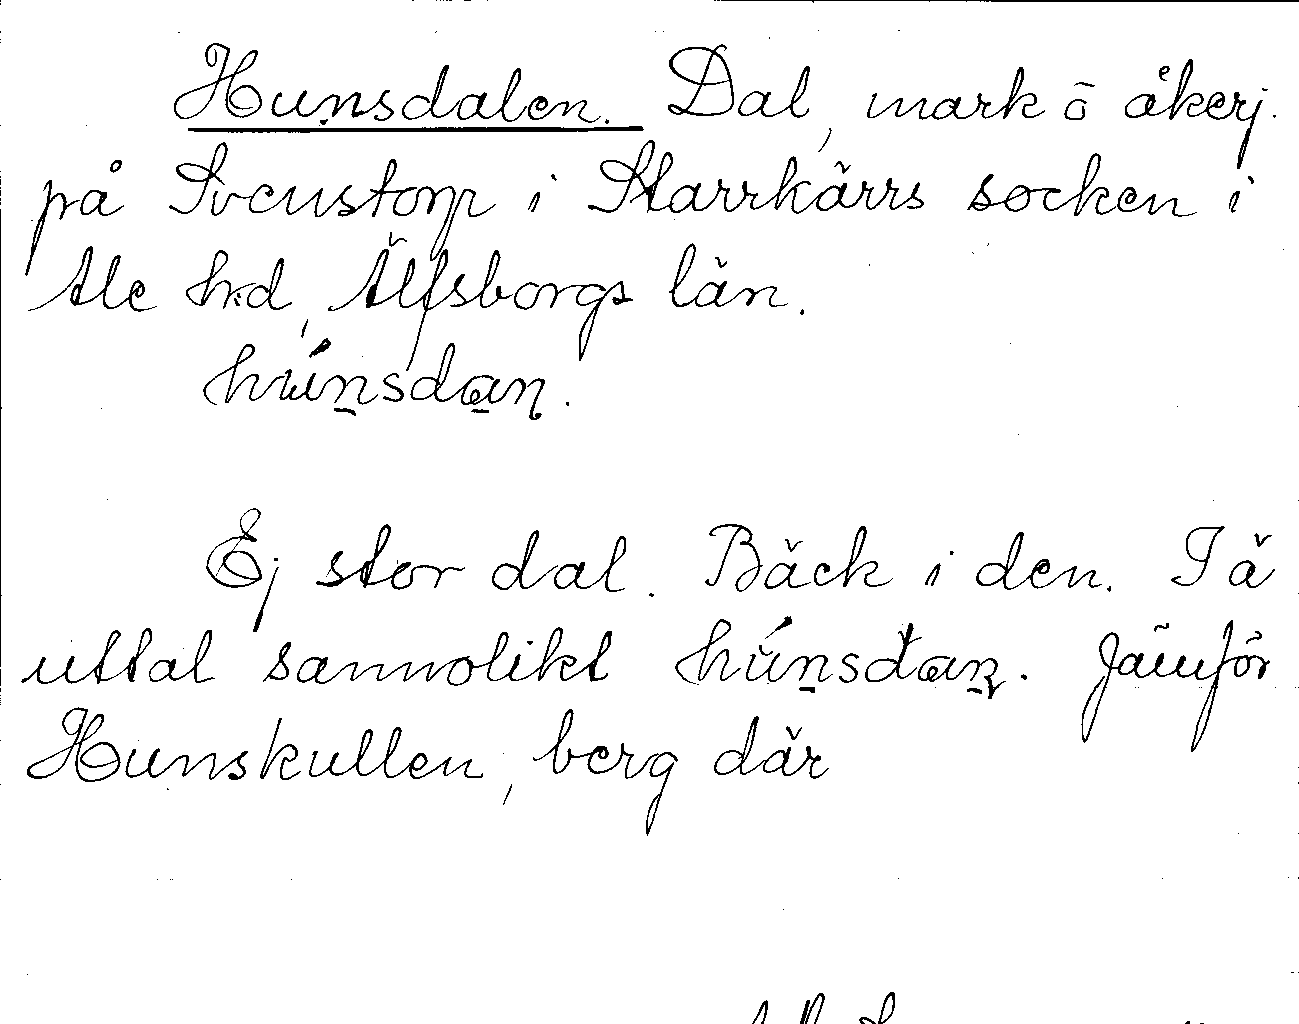 Hunsdalen. Dal, mark ō åkerj.
på Svenstorp i Starrkärrs socken i
Ale hd, Älfsborgs län.
húnsdaṇ.
Ej stor dal. Bäck i den. Tä
uttal sannolikt húnsdaṇ. Jämför
Hunskullen, berg där